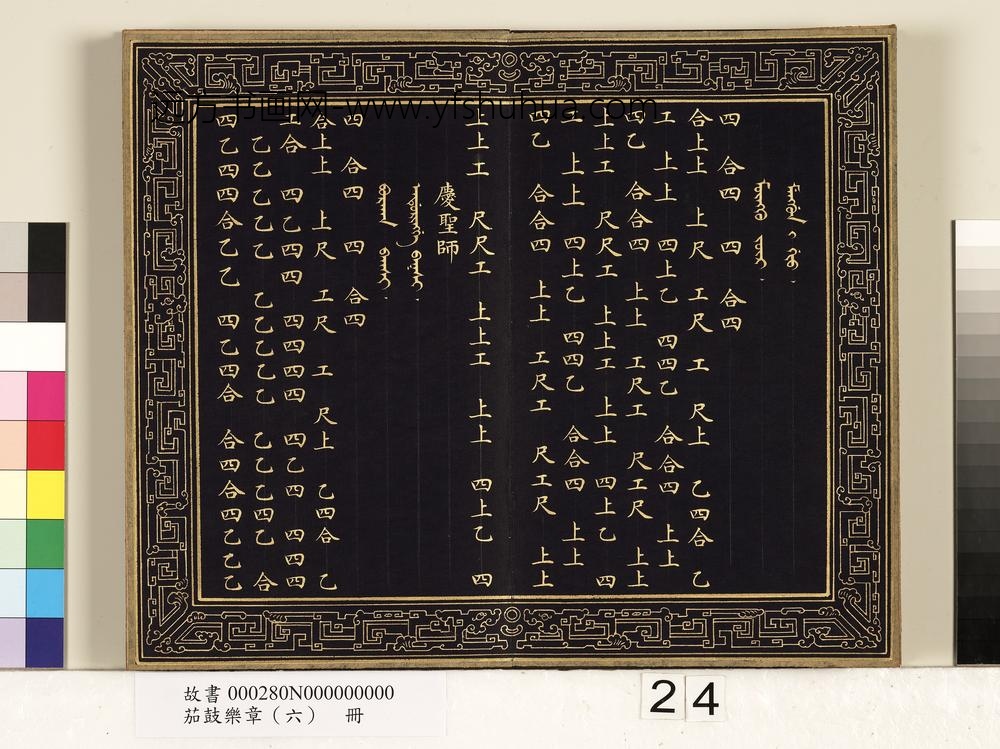 四 合四 四 合四
合上上 上尺 工尺 工 尺上 乙四合 乙
工 上上 四上乙 四四乙 合合四 上上
四乙 合合四 上上 工尺工 尺工尺 上上
上上工 尺尺工 上上工 上上 四上乙 四
工 上上 四上乙 四四乙 合合四 上上
四乙 合合四 上上 工尺工 尺工尺 上上
上上工 尺尺工 上上工 上上 四上乙 四
慶聖師
四 合四 四 合四
合上上 上尺 工尺 工 尺上 乙四合 乙
合 四乙四四 四四四四 四乙四 四四四
乙乙乙乙乙 乙乙乙乙乙 乙乙乙四乙 合
四乙四四合乙乙 四乙四合 合四合四乙乙乙
方书画网-www.yfshuhua.com
故書 000280N000000000
茄鼓樂章（六） 冊
24